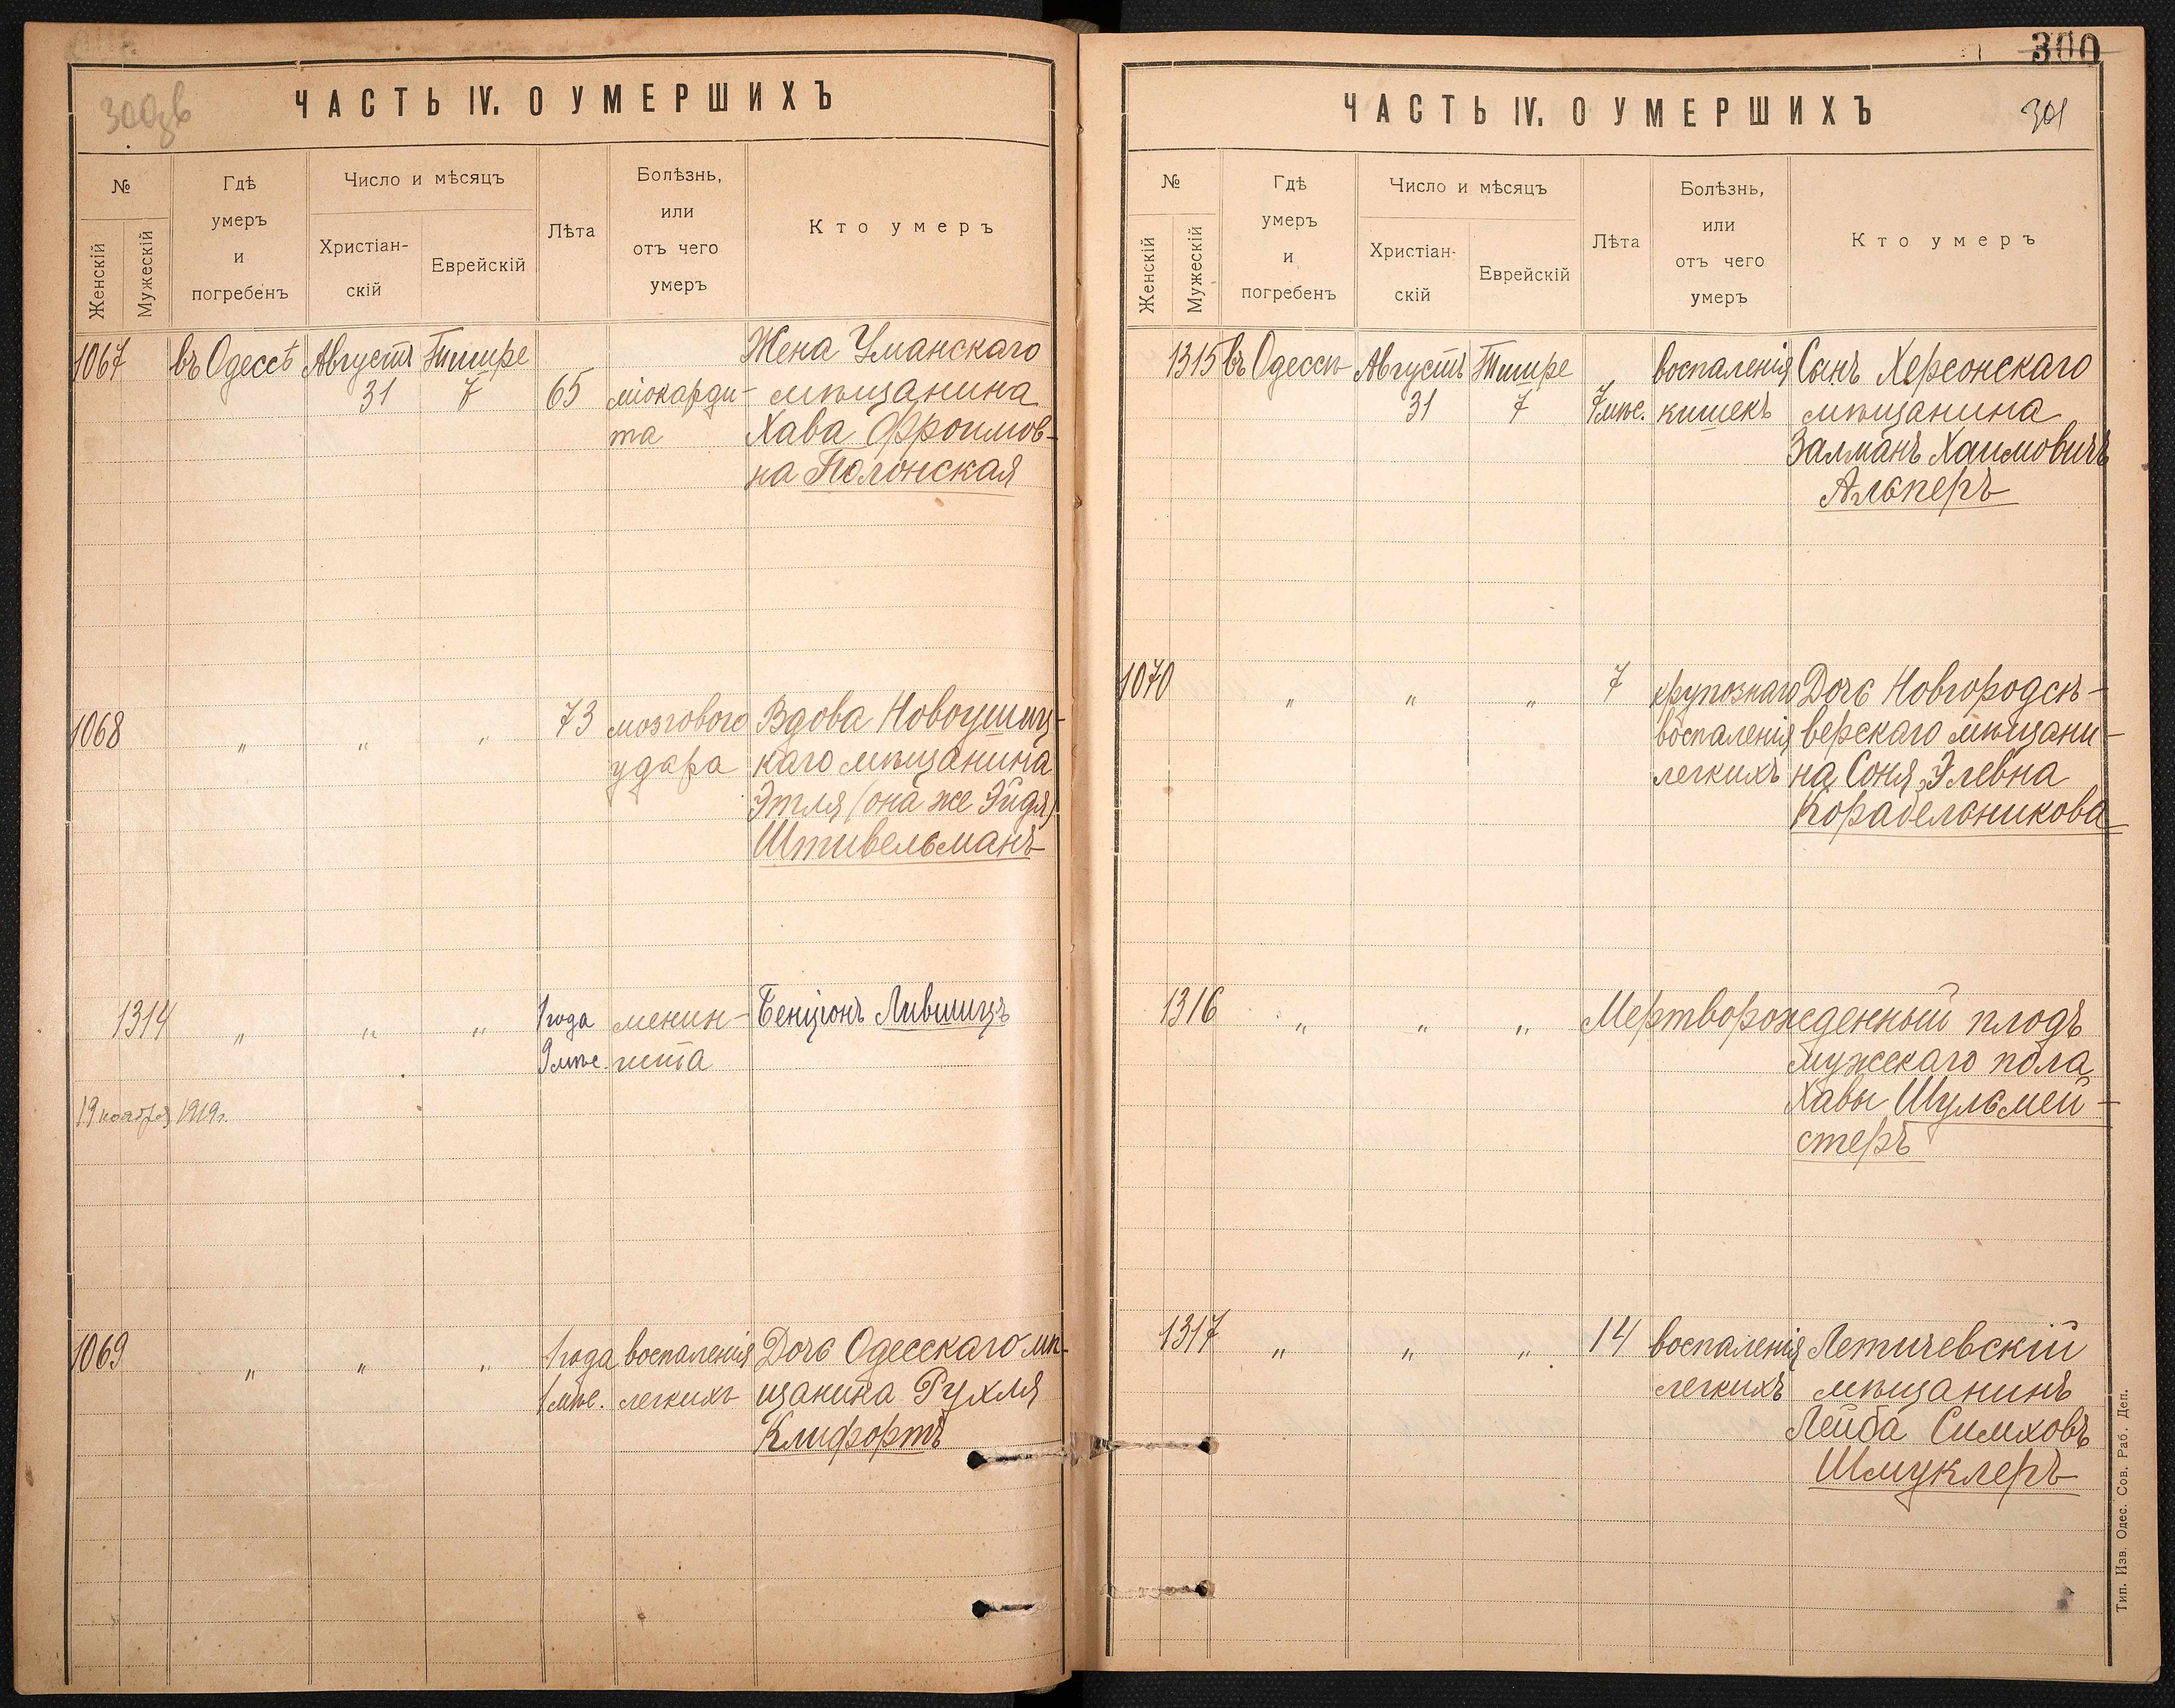 300зв
ЧАСТЬ IV. О УМЕРШИХЪ
№
Женскій
Мужескій
Гдѣ
умеръ
и
погребенъ
Число и мѣсяцъ
Христіан-
скій
Еврейскій
Лѣта
Болѣзнь,
или
отъ чего
умеръ
Кто умеръ
1067 въ Одессѣ Августъ Тишре Жена Уманскаго
31 7 65 міокарди- мѣщанина
та Хава Фроимов-
на Полонская
1068 „ „ „ 73 мозгового Вдова Новоушиц-
удара каго мѣщанина
Этля (она же Эйдя)
Штивельманъ
1314 „ „ „ 1 года менин- Бенціонъ Лившицъ
9 мѣс. гита
19 ноября 1919г.
1069 „ „ „ 1 года воспаленія Дочь Одесскаго мѣ-
1 мѣс. легкихъ щанина Рухля
Клифортъ
300
301
ЧАСТЬ IV. О УМЕРШИХЪ
№
Женскій
Мужескій
Гдѣ
умеръ
и
погребенъ
Число и мѣсяцъ
Христіан-
скій
Еврейскій
Лѣта
Болѣзнь,
или
отъ чего
умеръ
Кто умеръ
1315 въ Одессѣ Августъ Тишре воспаленія Сынъ Херсонскаго
31 7 7 мѣс. кишекъ мѣщанина
Залманъ Хаимовичъ
Альперъ
1070 „ „ „ 7 крупознаго Дочь Новгородсѣ-
воспаленія верскаго мѣщани-
легкихъ на Соня Элевна
Корабельникова
1316 „ „ „ Мертворожденный плодъ
мужескаго пола
Хавы Шульмей-
стеръ
1317 „ „ „ 14 воспаленія Летичевскій
легкихъ мѣщанинъ
Лейба Симховъ
Шмуклеръ
Тип. Изв. Одес. Сов. Раб. Деп.